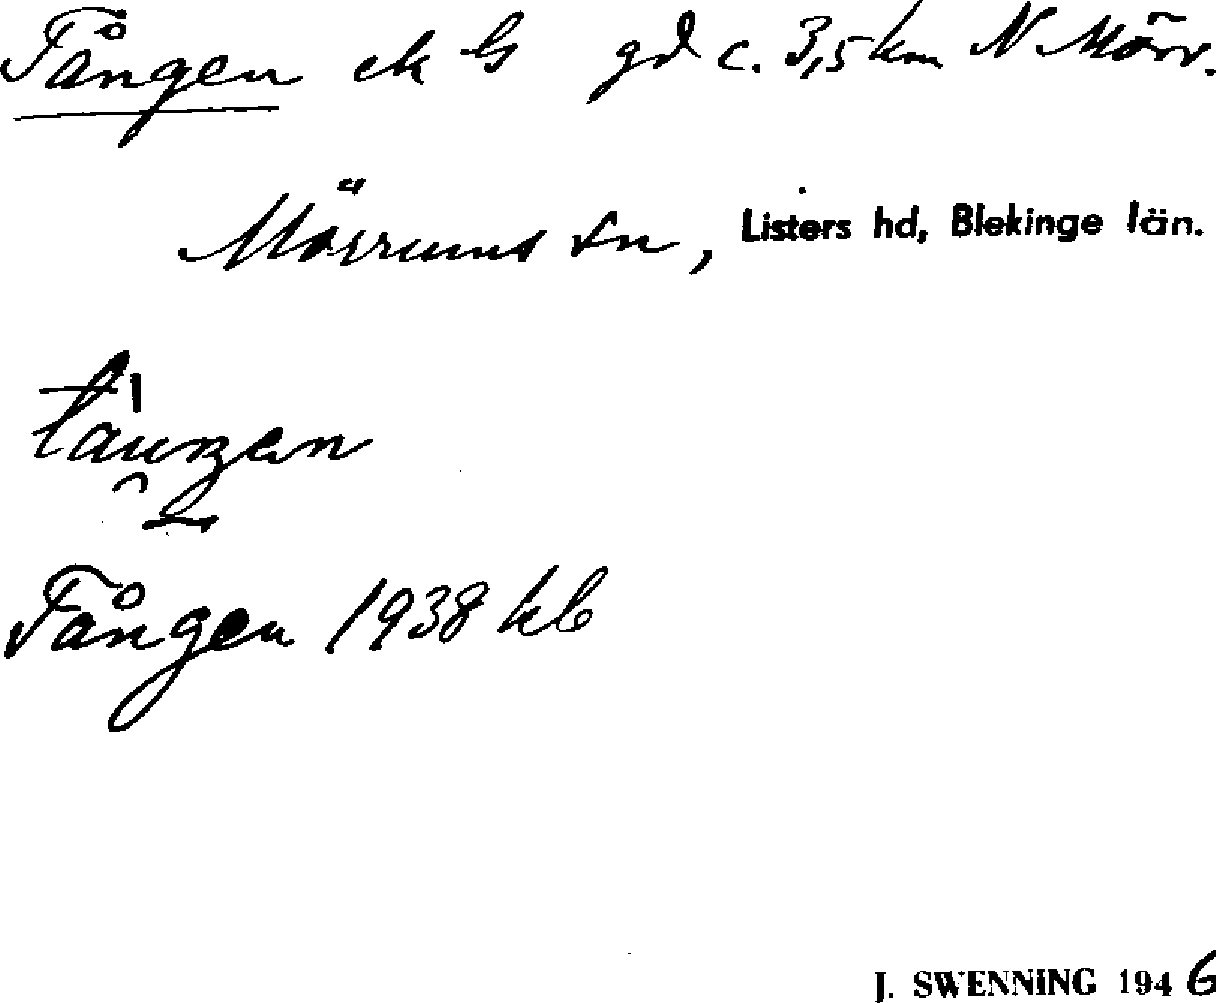 Tången ek G gd c. 3,5 km N Mörr.
Mörrums sn, Listers hd, Blekinge län.
Tången 1938 kb
J. SWENNING 1946